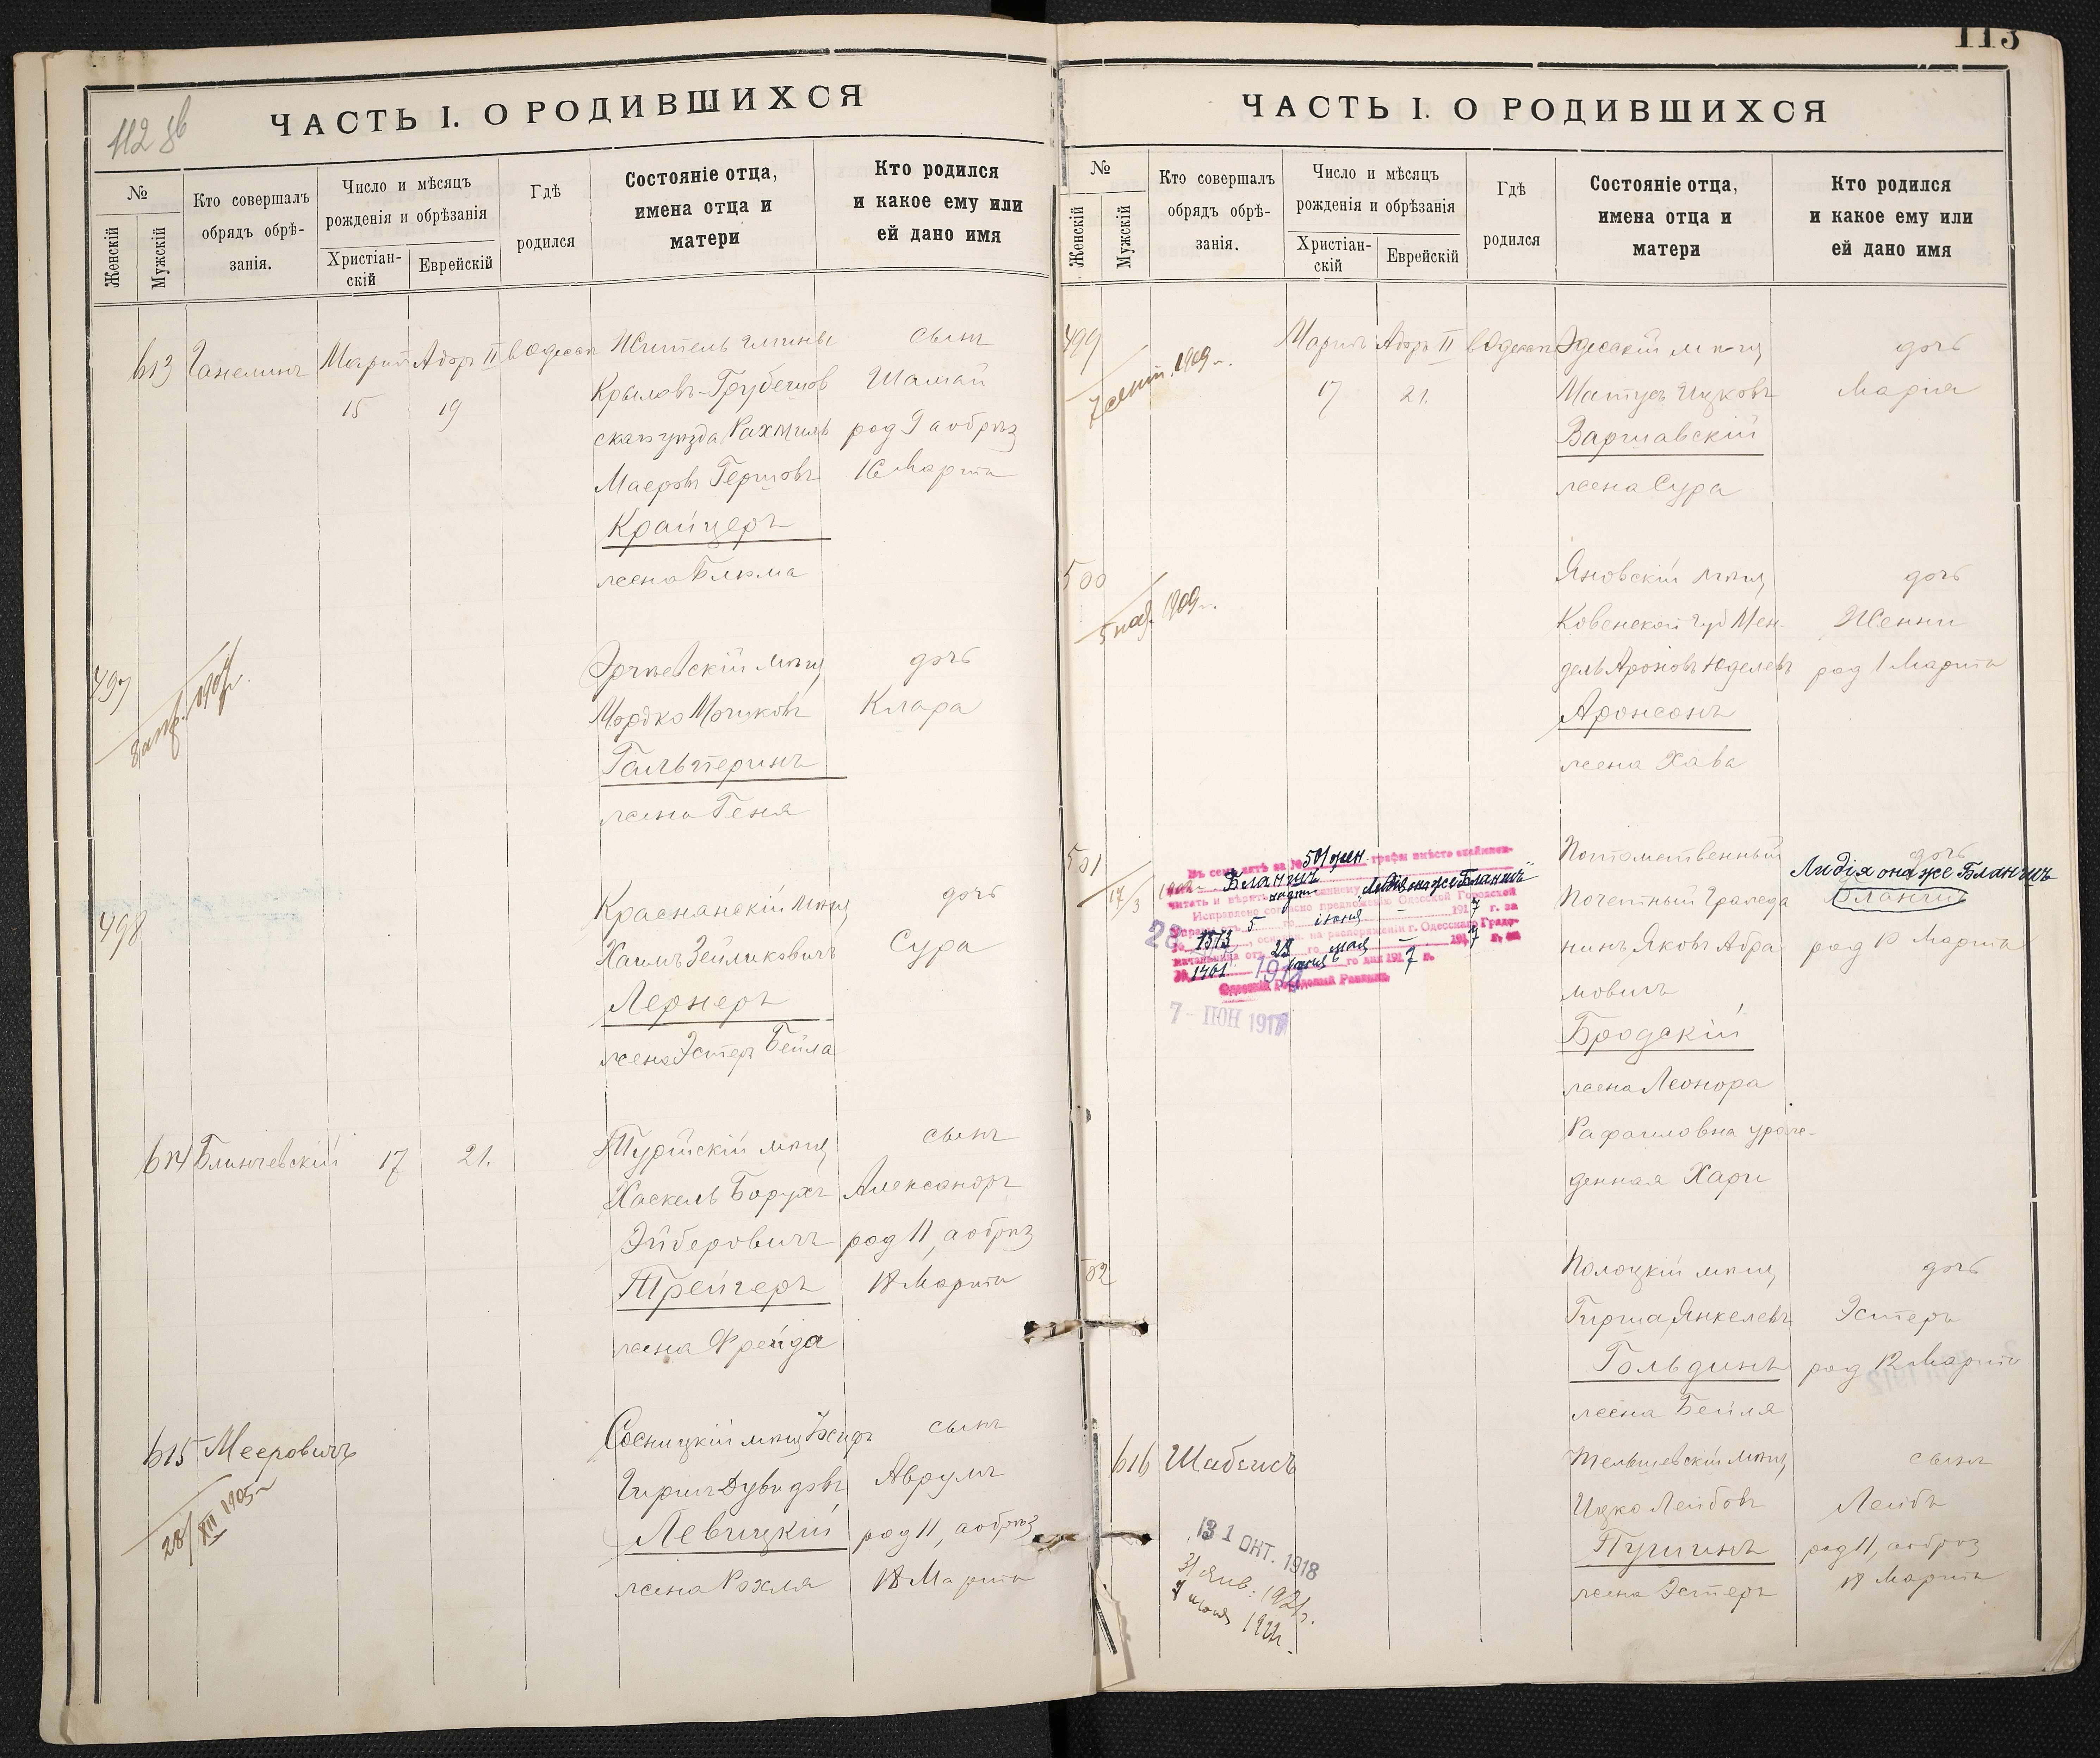 112 зв
ЧАСТЬ I. О РОДИВШИХСЯ
№
Женскій
Мужскій
Кто совершалъ
обрядъ обрѣ-
занія.
Число и мѣсяцъ
рожденія и обрѣзанія
Христіан-
скій
Еврейскій
Гдѣ
родился
Состояніе отца,
имена отца и
матери
Кто родился
и какое ему или
ей дано имя
613 Ганелинъ Марта 15 Адаръ II 19 в Одессѣ
Житель гмины
Крыловъ-Грубешов
скаго уѣзда Рахмиль
Маеровъ Гершовъ
Крайцеръ
жена Блюма
сынъ
Шамай
род 9 а обрѣз
16 Марта
497
мѣщ
Мордко Мошковъ
Гальперинъ
жена Геня
дочь
Клара
498
Краснянскій мѣщ
Хаимъ Зейликовичъ
Лернеръ
жена Эстеръ Бейла
дочь
Сура
614 Блинчевскій 17 21.
Турійскій мѣщ
Хаскель Борухъ
Трейгеръ
жена Фрейда
сынъ
Александръ
род 11, а обрѣз
18 Марта
615 Мееровичъ
28/XII 1905
Сосницкій мѣщ
Гиршъ Дувидовъ
Левицкій
жена Рохля
сынъ
Аврумъ
род 11, а обрѣз
18 Марта
113
ЧАСТЬ I. О РОДИВШИХСЯ
№
Женскій
Мужскій
Кто совершалъ
обрядъ обрѣ-
занія.
Число и мѣсяцъ
рожденія и обрѣзанія
Христіан-
скій
Еврейскій
Гдѣ
родился
Состояніе отца,
имена отца и
матери
Кто родился
и какое ему или
ей дано имя
499
7 сент. 1909
Марта 17 Адаръ II 21. в Одессѣ
Одесскій мѣщ
Матусъ Ицковъ
Варшавскій
жена Сура
дочь
Марія
500
5 1909
Яновскій мѣщ
Ковенской губ Мен-
дель Ароновъ Юделевъ
Аронсонъ
жена Хава
дочь
Женни
род 1 Марта
501
17/3
Въ семъ актѣ за № 501 жен. графы вмѣсто
Бланшъ
читать и вѣрить „Лидія она же Бланшъ"
Исправлено согласно предложенію Одесской Городской
Управы отъ 5 го іюня 1917 г. за
№ 1573, основан. на распоряженіи г. Одесскаго Градо-
начальника отъ 23 го мая 1917 г. за
№ 1461. го дня 1917 г.
Одесскій Городовой Раввинъ
7 - ІЮН 1917
Потомственный
Почетный Гражда
нинъ Яковъ Абра
мовичъ
Бродскій
жена Леонора
Рафаиловна урож-
денная Хари
дочь
Лидія она же Бланшъ
Бланшъ
род 10 Марта
502
Полоцкій мѣщ
Гирша Янкелевъ
Гольдинъ
жена Бейля
дочь
Эстеръ
род 12 Марта
616 Шабсисъ
31 ОКТ. 1918
31 Янв. 1921 г.
Тельшевскій мѣщ
Ицко Лейбовъ
Пушинъ
жена Эстеръ
сынъ
Лейбъ
род 11, а обрѣз
18 Марта